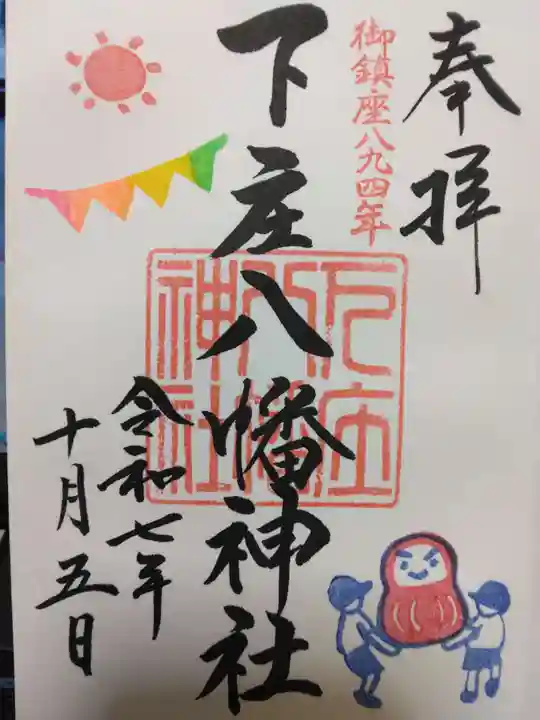 奉拝
御鎮座八九四年
下庄八幡神社
下庄八幡神社
令和七年
十月五日